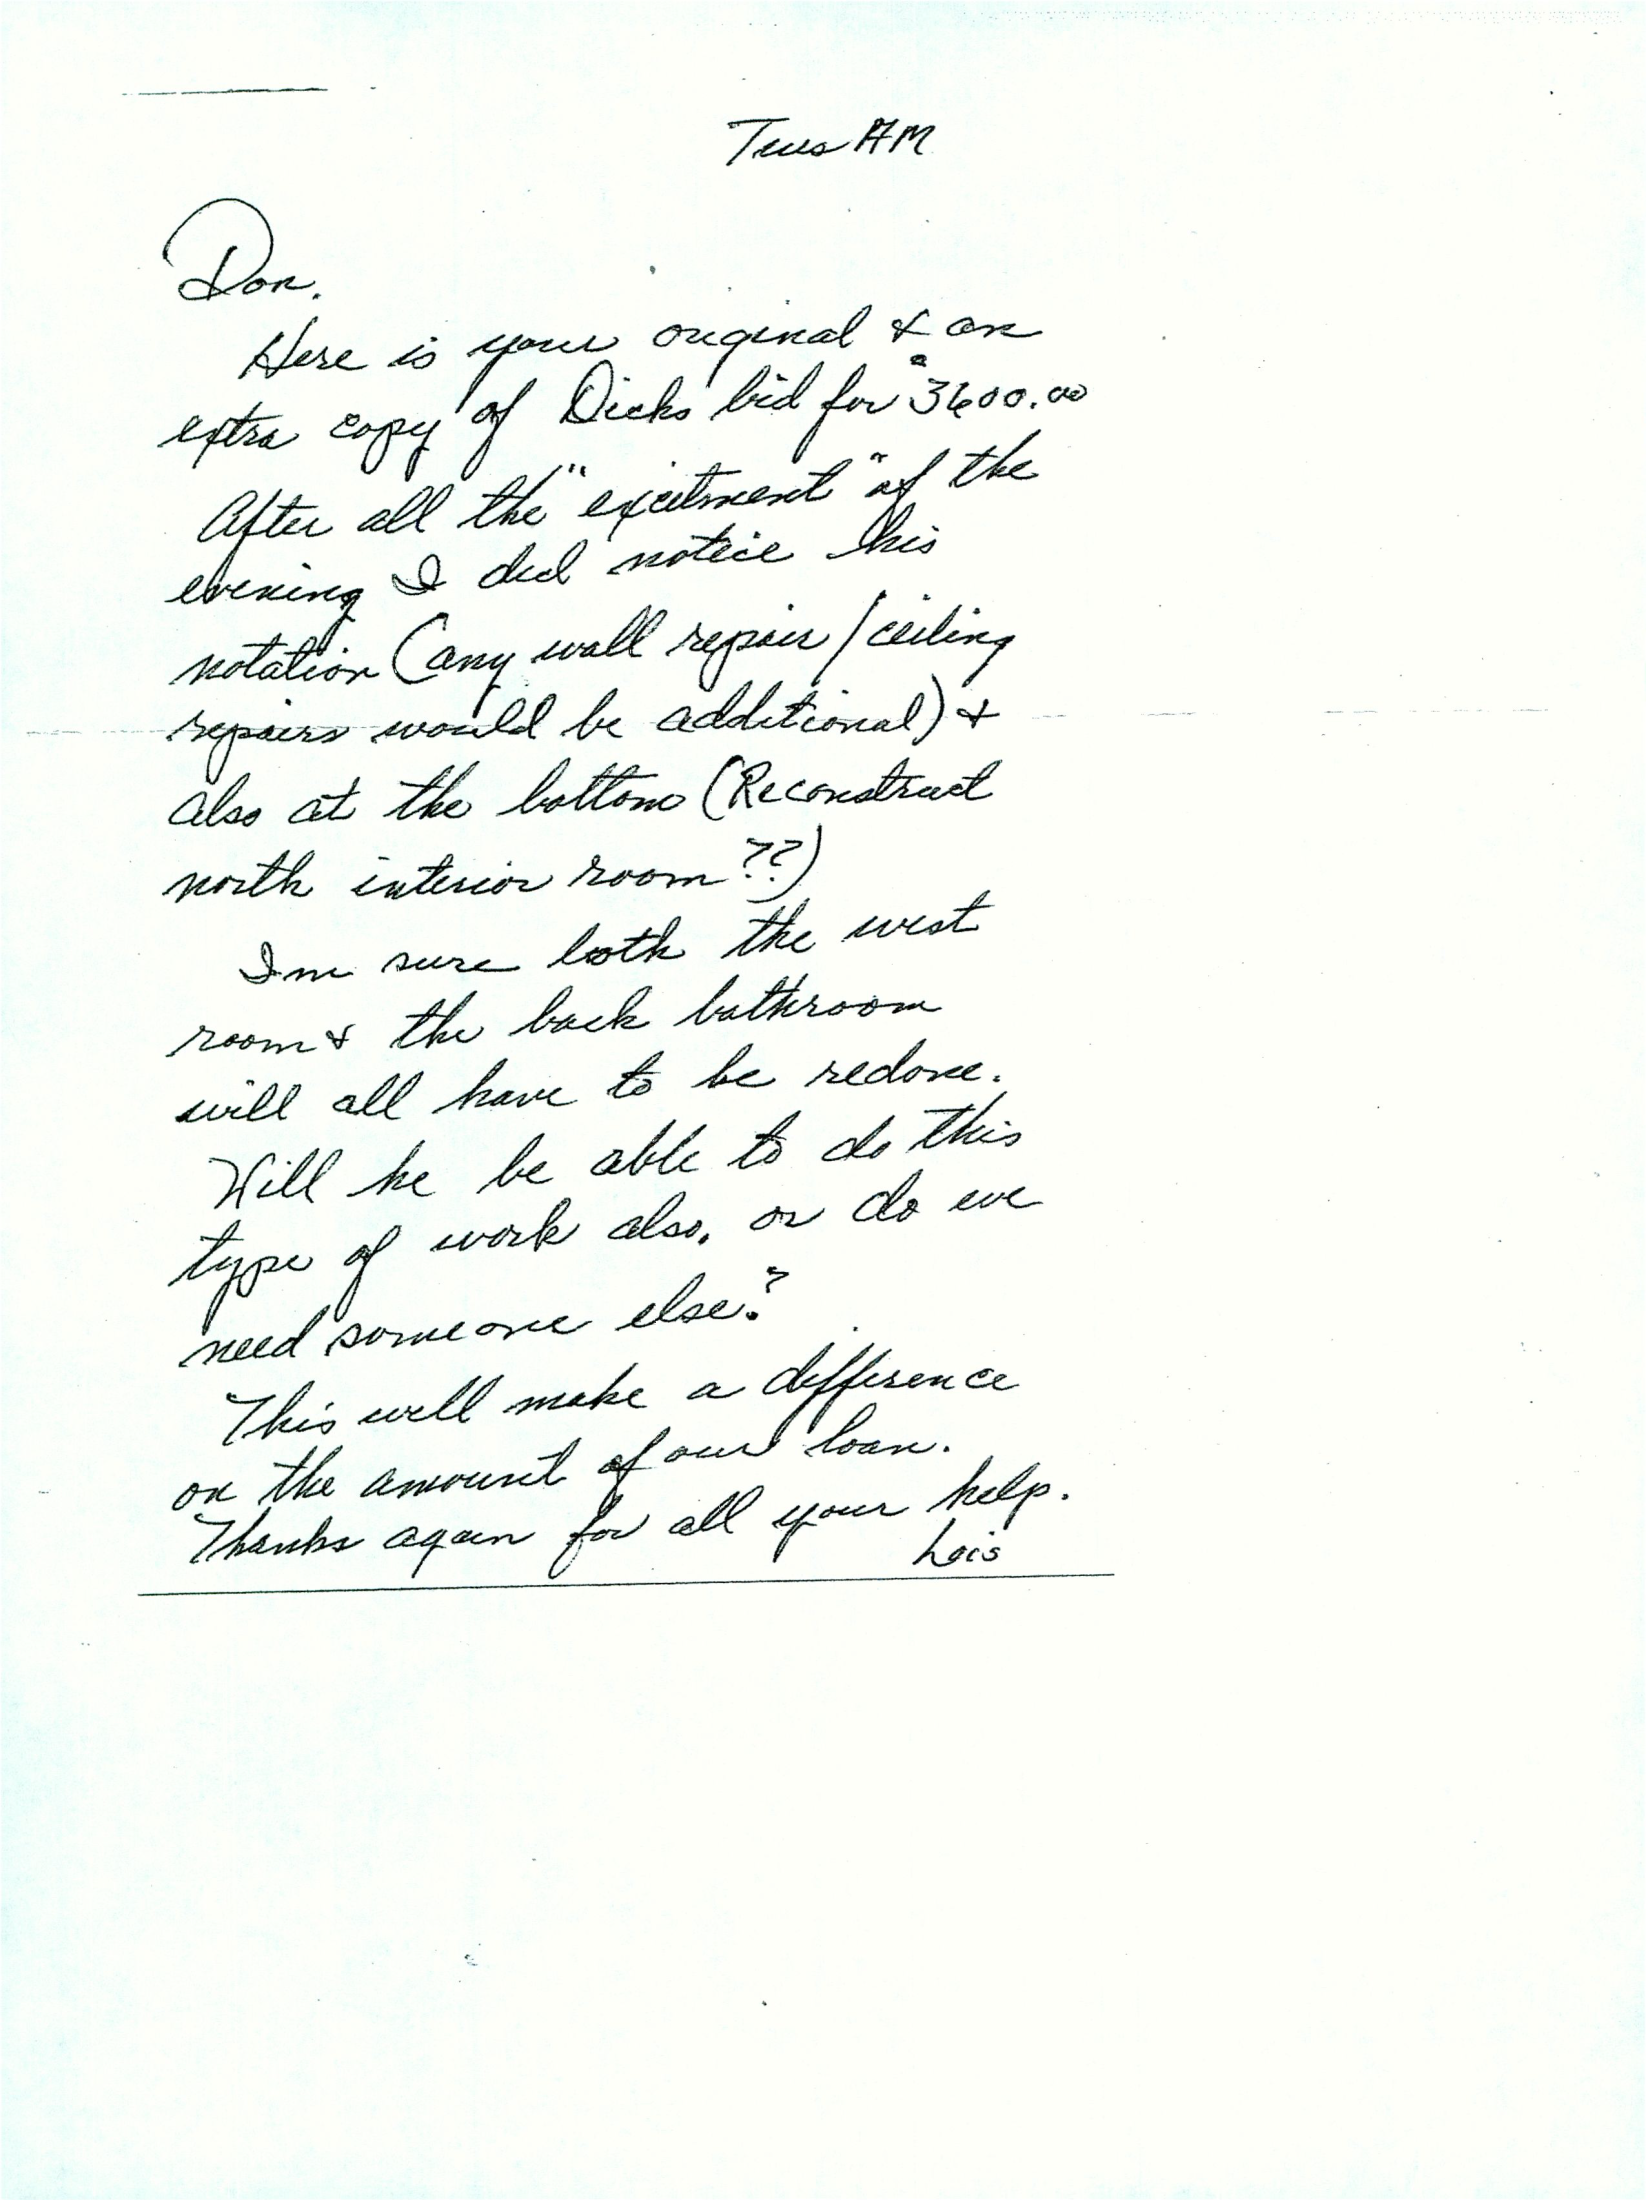 Tues AM
Don.
Here is your original & an
extra copy of Dicks bid for $3600.00
After all the "excitment" of the
evening I did notice his
notation (any wall repair/ceiling
repairs would be additional) &
also at the bottom (Reconstruct
north interior room??)
Im sure both the west
room & the back bathroom
will all have to be redone.
Will he be able to do this
type of work also, or do we
need someone else?
This will make a difference
on the amount of our loan.
Thanks again for all your help.
Lois